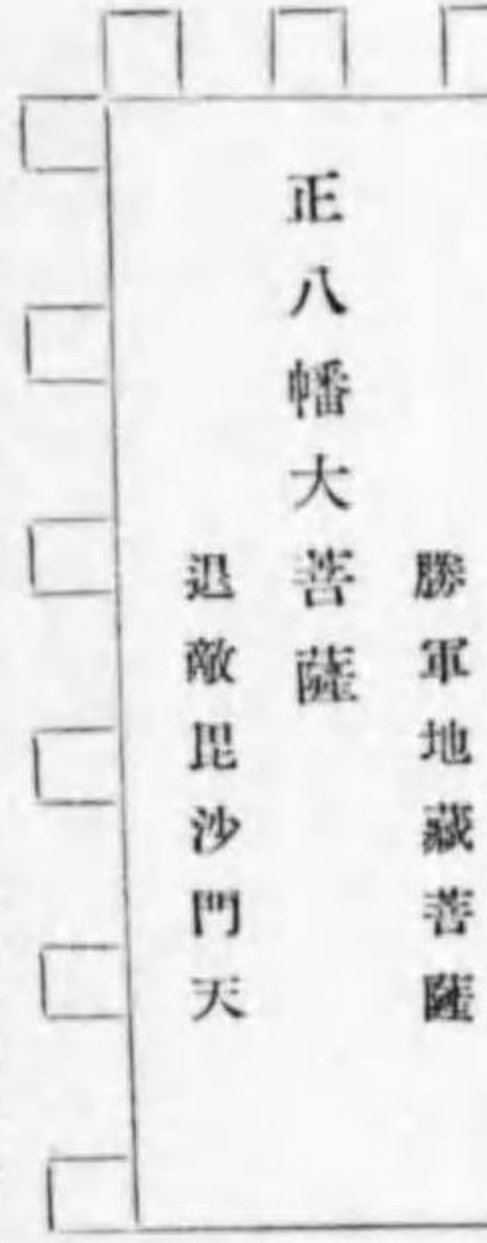 勝軍地藏菩薩
正八幡大菩薩
退敵毘沙門天